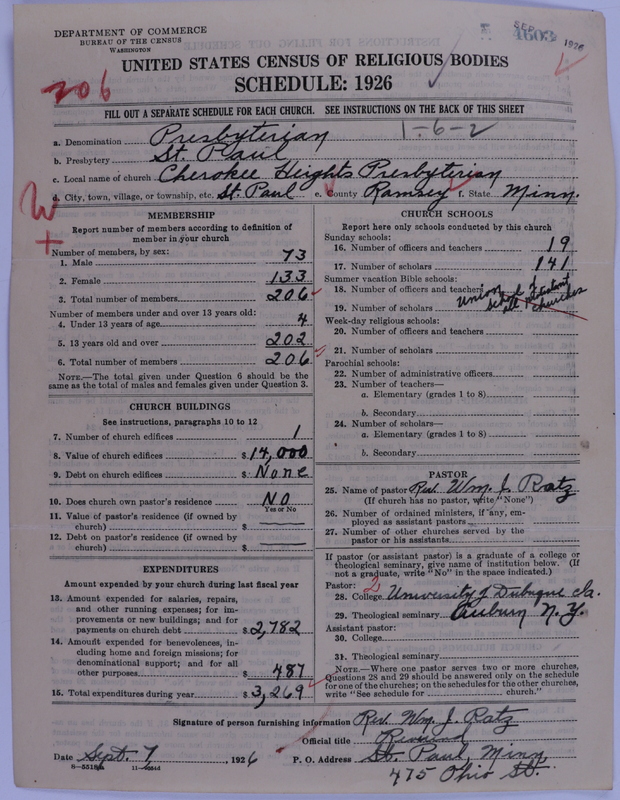 DEPARTMENT OF COMMERCE
BUREAU OF THE CENSUS
WASHINGTON
SEP 1926
4603
UNITED STATES CENSUS OF RELIGIOUS BODIES
SCHEDULE: 1926
206
FILL OUT A SEPARATE SCHEDULE FOR EACH CHURCH. SEE INSTRUCTIONS ON THE BACK OF THIS SHEET
1-6-2
a. Denomination Presbyterian
b. Presbytery St. Paul
c. Local name of church Cherokee Heights Presbyterian
d. City, town, village, or township, etc. St. Paul e. County Ramsey f. State Minn.
W
+
MEMBERSHIP
Report number of members according to definition of
member in your church
Number of members, by sex:
1. Male 73
2. Female 133
3. Total number of members 206
Number of members under and over 13 years old:
4. Under 13 years of age 4
5. 13 years old and over 202
6. Total number of members 206
NOTE.—The total given under Question 6 should be
the same as the total of males and females given under Question 3.
CHURCH BUILDINGS
See instructions, paragraphs 10 to 12
7. Number of church edifices 1
8. Value of church edifices $ 14,000
9. Debt on church edifices $ None
10. Does church own pastor's residence No
Yes or No
11. Value of pastor's residence (if owned by
church) $
12. Debt on pastor's residence (if owned by
church) $
EXPENDITURES
Amount expended by your church during last fiscal year
13. Amount expended for salaries, repairs,
and other running expenses; for im-
provements or new buildings; and for
payments on church debt $ 2,782
14. Amount expended for benevolences, in-
cluding home and foreign missions; for
denominational support; and for all
other purposes $ 487
15. Total expenditures during year $ 3,269
CHURCH SCHOOLS
Report here only schools conducted by this church
Sunday schools:
16. Number of officers and teachers 19
17. Number of scholars 141
Summer vacation Bible schools:
18. Number of officers and teachers
Union school of
all protestant
churches
19. Number of scholars
Week-day religious schools:
20. Number of officers and teachers
21. Number of scholars
Parochial schools:
22. Number of administrative officers
23. Number of teachers—
a. Elementary (grades 1 to 8)
b. Secondary
24. Number of scholars—
a. Elementary (grades 1 to 8)
b. Secondary
PASTOR
25. Name of pastor Rev. Wm. J. Ratz
(If church has no pastor, write "None")
26. Number of ordained ministers, if any, em-
ployed as assistant pastors
27. Number of other churches served by the
pastor or his assistants
If pastor (or assistant pastor) is a graduate of a college or
theological seminary, give name of institution below. (If
not a graduate, write "No" in the space indicated.)
Pastor: 2
28. College University of Dubuque Ia.
29. Theological seminary Auburn N.Y.
Assistant pastor:
30. College
31. Theological seminary
NOTE.—Where one pastor serves two or more churches,
Questions 28 and 29 should be answered only on the schedule
for one of the churches; on the schedules for the other churches,
write "See schedule for church."
Signature of person furnishing information Rev. Wm. J. Ratz
Official title Reverend
Date Sept. 7, 1926 P. O. Address St. Paul, Minn.
475 Ohio St.